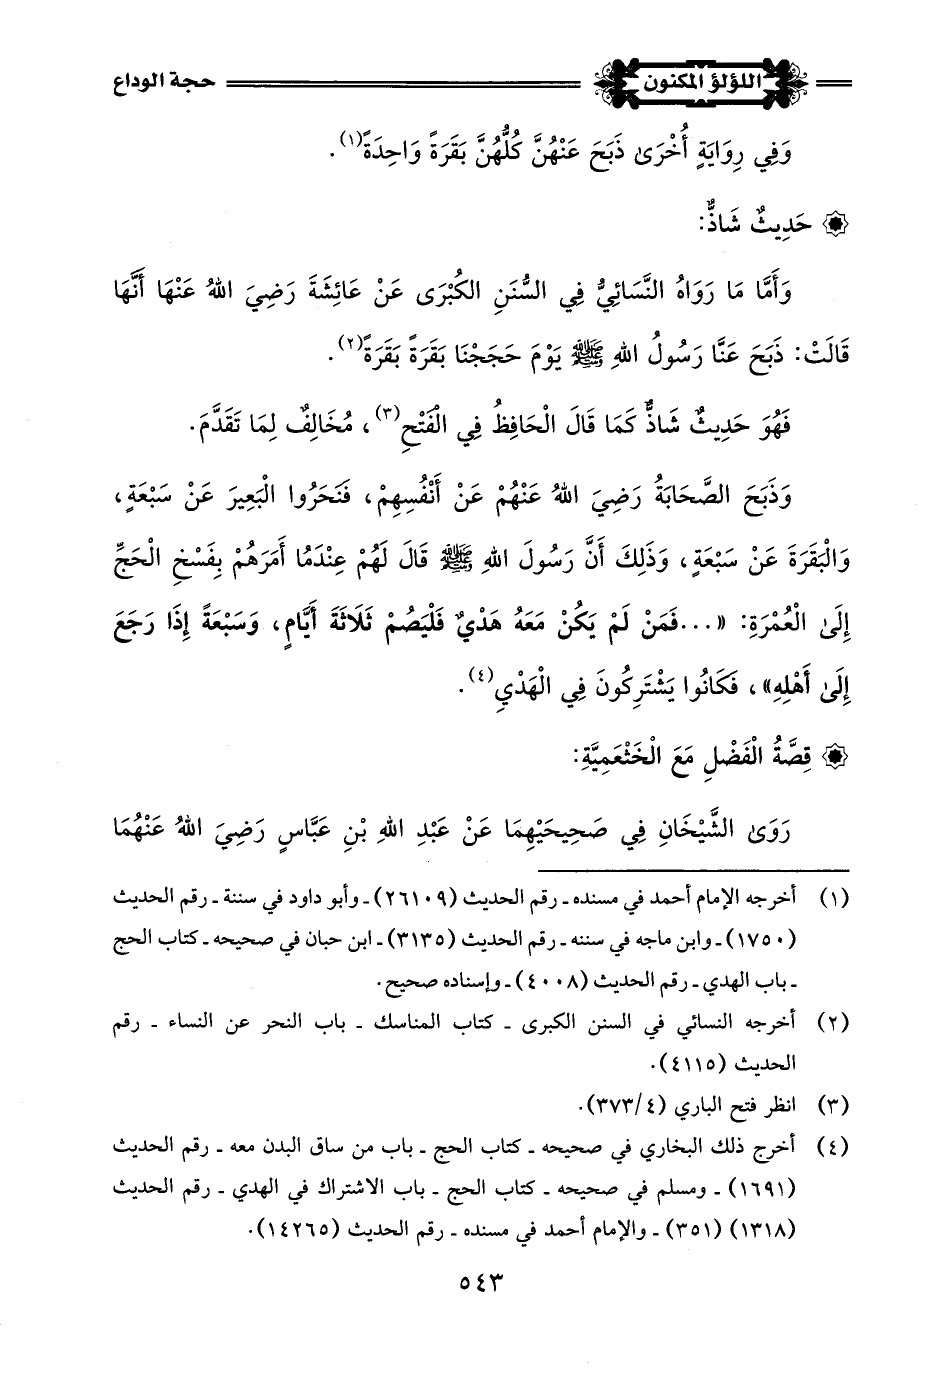 اللؤلؤ المكنون
حجة الوداع
وَفِي رِوَايَةٍ أُخْرَىٰ ذَبَحَ عَنْهُنَّ كُلُّهُنَّ بَقَرَةً وَاحِدَةً(١).
حَدِيثٌ شَاذٌّ:
وَأَمَّا مَا رَوَاهُ النَّسَائِيُّ فِي السُّنَنِ الكُبْرَى عَنْ عَائِشَةَ رَضِيَ اللهُ عَنْهَا أَنَّهَا
قَالَتْ: ذَبَحَ عَنَّا رَسُولُ اللهِ ﷺ يَوْمَ حَجَجْنَا بَقَرَةً بَقَرَةً(٢).
فَهُوَ حَدِيثٌ شَاذٌّ كَمَا قَالَ الْحَافِظُ فِي الْفَتْحِ(٣)، مُخَالِفٌ لِمَا تَقَدَّمَ.
وَذَبَحَ الصَّحَابَةُ رَضِيَ اللهُ عَنْهُمْ عَنْ أَنْفُسِهِمْ، فَنَحَرُوا الْبَعِيرَ عَنْ سَبْعَةٍ،
وَالْبَقَرَةَ عَنْ سَبْعَةٍ، وَذَلِكَ أَنَّ رَسُولَ اللهِ ﷺ قَالَ لَهُمْ عِنْدَمَا أَمَرَهُمْ بِفَسْخِ الْحَجِّ
إِلَىٰ الْعُمْرَةِ: «...فَمَنْ لَمْ يَكُنْ مَعَهُ هَدْيٌ فَلْيَصُمْ ثَلَاثَةَ أَيَّامٍ، وَسَبْعَةً إِذَا رَجَعَ
إِلَىٰ أَهْلِهِ»، فَكَانُوا يَشْتَرِكُونَ فِي الْهَدْيِ(٤).
قِصَّةُ الْفَضْلِ مَعَ الْخَثْعَمِيَّةِ:
رَوَىٰ الشَّيْخَانِ فِي صَحِيحَيْهِمَا عَنْ عَبْدِ اللهِ بْنِ عَبَّاسٍ رَضِيَ اللهُ عَنْهُمَا
(١) أخرجه الإمام أحمد في مسنده ـ رقم الحديث (٢٦١٠٩) ـ وأبو داود في سننة ـ رقم الحديث
(١٧٥٠) ـ وابن ماجه في سننه ـ رقم الحديث (٣١٣٥) ـ ابن حبان في صحيحه ـ كتاب الحج
ـ باب الهدي ـ رقم الحديث (٤٠٠٨) ـ وإسناده صحيح.
(٢) أخرجه النسائي في السنن الكبرى ـ كتاب المناسك ـ باب النحر عن النساء ـ رقم
الحديث (٤١١٥).
(٣) انظر فتح الباري (٣٧٣/٤).
(٤) أخرج ذلك البخاري في صحيحه ـ كتاب الحج ـ باب من ساق البدن معه ـ رقم الحديث
(١٦٩١) ـ ومسلم في صحيحه ـ كتاب الحج ـ باب الاشتراك في الهدي ـ رقم الحديث
(١٣١٨) (٣٥١) ـ والإمام أحمد في مسنده ـ رقم الحديث (١٤٢٦٥).
٥٤٣